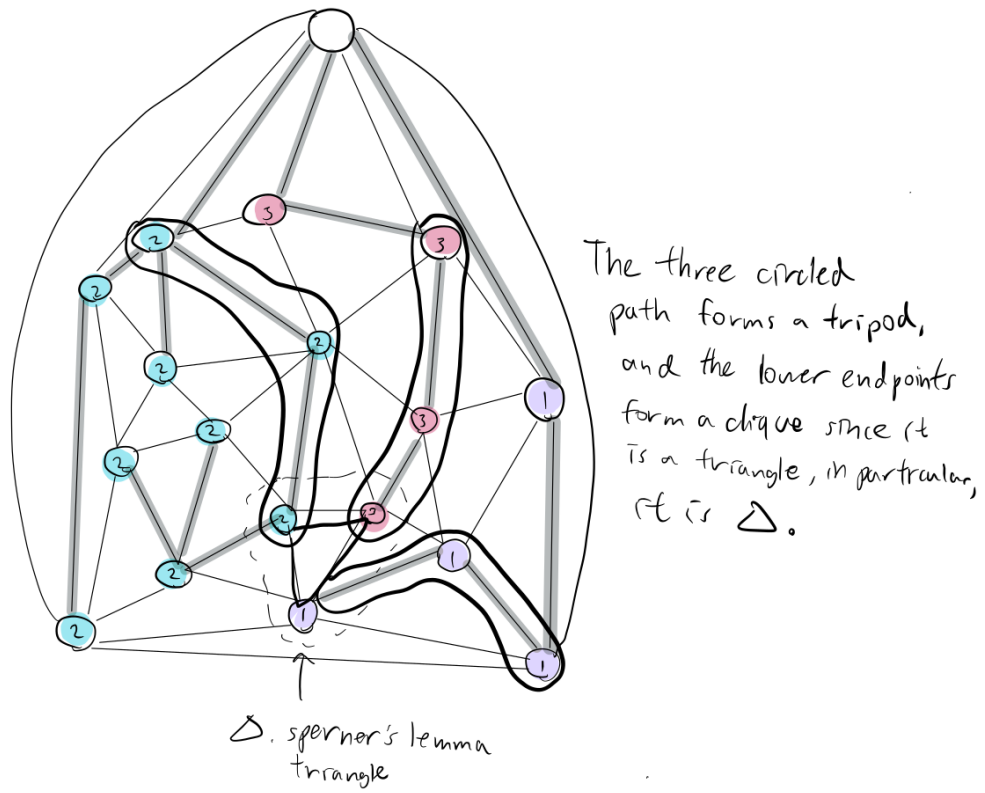 3
2
3
2
2
2
1
3
2
2
2
3
1
2
1
2
1
The three circled
path forms a tripod,
and the lower endpoints
form a clique since it
is a triangle, in particular,
it is Δ.
Δ. sperner's lemma
triangle